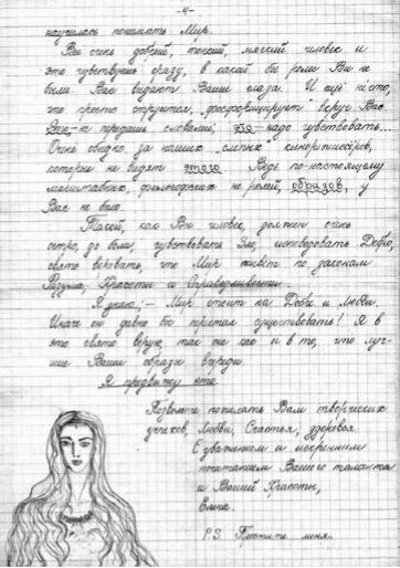 -4-
научилась понимать Мир.
Вы очень добрый, тонкий мягкий человек и
это чувствуешь сразу, в какой бы роли Вы не
были Вас выдают Ваши глаза. И ещё нечто,
что просто струится, „фосфорицирует" вокруг Вас
Это не предашь словами, это надо чувствовать...
Очень обидно за наших „слепых" кинорежиссёров,
которые не видят этого. Ведь по-настоящему
масштабных, философских не ролей, образов, у
Вас не было.
Такой, как Вы человек, должен очень
остро, до боли, чувствовать Зло, исповедовать Добро,
свято веровать, что Мир живёт по законам
Разума, Красоты и Справедливости.
Я знаю, - Мир стоит на Добре и Любви.
Иначе он давно бы престал существовать! Я в
это свято верую, так же как и в то, что луч-
шие Ваши образы впереди.
Я предвижу это.
Позвольте пожелать Вам творческих
успехов, Любви, Счастья, здоровья
С уважением и искренним
почитанием Вашего таланта
и Вашей Красоты,
Елена.
P.S. Простите меня.